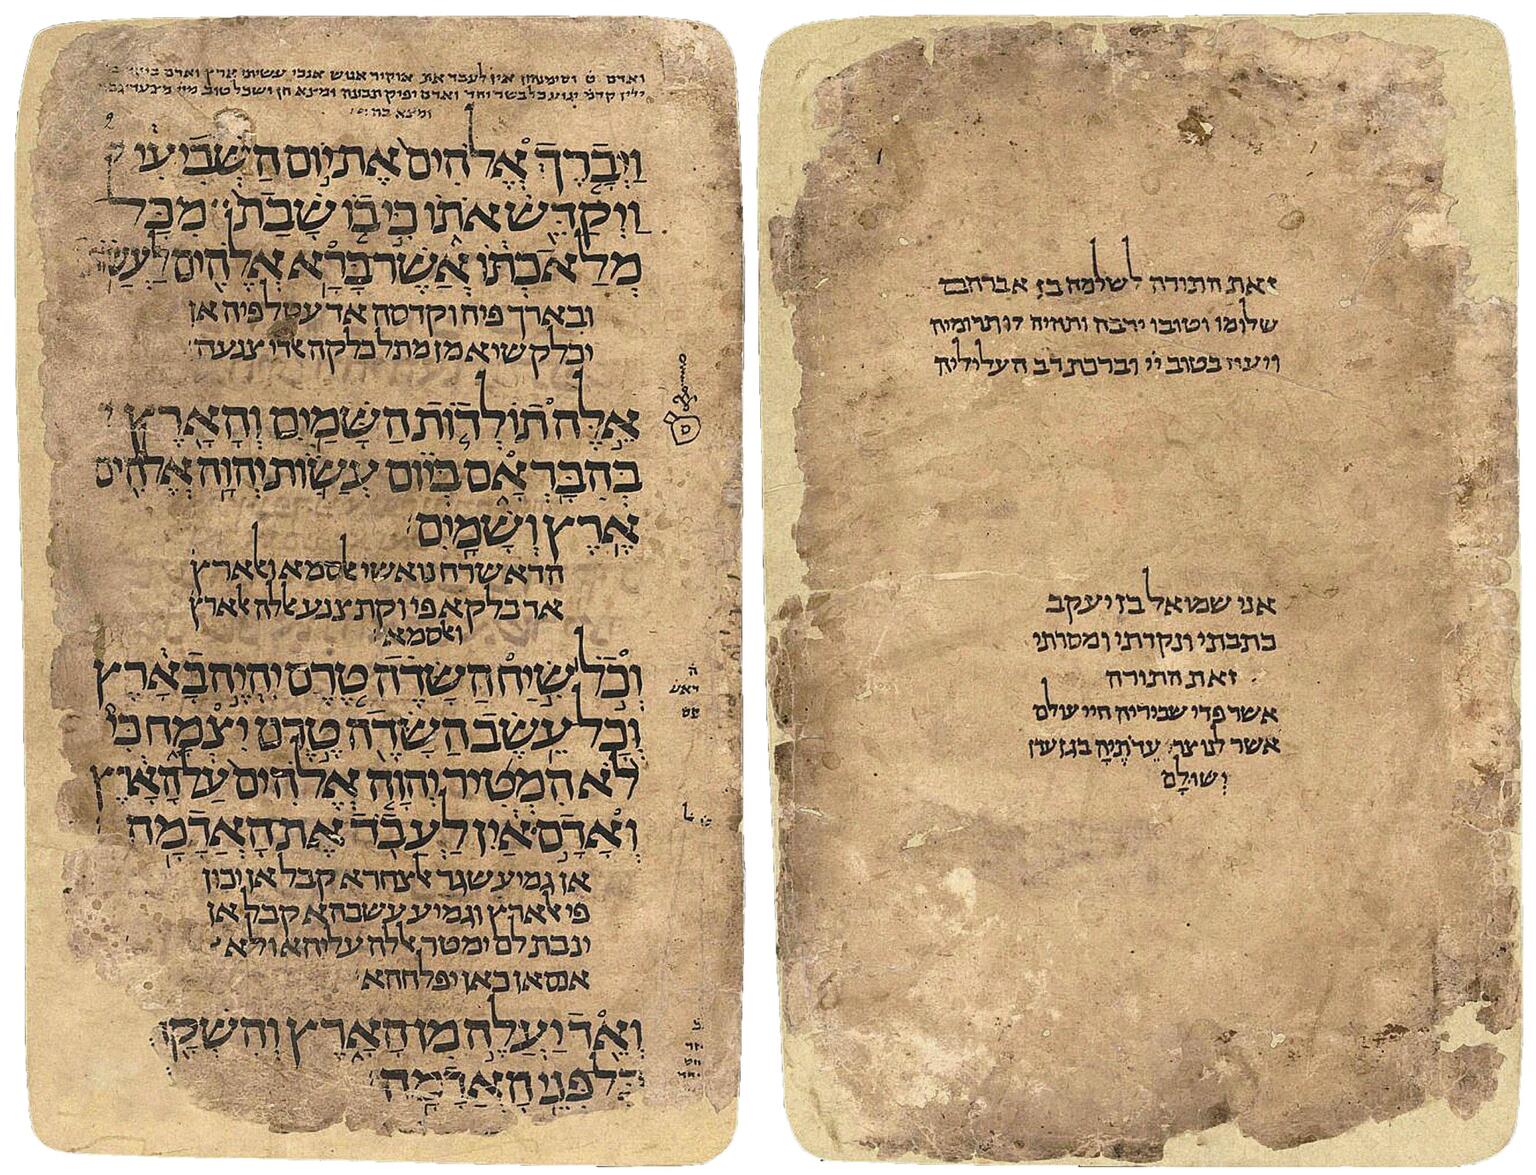 ואדם ט וסימנהון אין לעבד את אוקיר אנוש אנכי עשיתי ארץ ואדם
ילין קדמ יגוע כל בשר יחד ואדם יפיק תבונה ומצא חן ושכל טוב
ומצא
וַיְבָרֶךְ אֱלֹהִים אֶת יוֹם הַשְּׁבִיעִי
וַיְקַדֵּשׁ אֹתוֹ כִּי בוֹ שָׁבַת מִכָּל
מְלַאכְתּוֹ אֲשֶׁר בָּרָא אֱלֹהִים לַעֲשׂוֹת
ובארך פיה וקדסה אד עטל פיה אן
יכלק שי א מן מתל כלקה אלדי צנעה
אֵלֶּה תוֹלְדוֹת הַשָּׁמַיִם וְהָאָרֶץ
בְּהִבָּרְאָם בְּיוֹם עֲשׂוֹת יְהוָה אֱלֹהִים
אֶרֶץ וְשָׁמָיִם׃
הדא שרח נואשי אלסמא ואלארץ
אד כלקא פי וקת צנע אללה אלארץ
ואלסמא
וְכֹל שִׂיחַ הַשָּׂדֶה טֶרֶם יִהְיֶה בָאָרֶץ
וְכָל עֵשֶׂב הַשָּׂדֶה טֶרֶם יִצְמָח כִּי
לֹא הִמְטִיר יְהוָה אֱלֹהִים עַל הָאָרֶץ
וְאָדָם אַיִן לַעֲבֹד אֶת הָאֲדָמָה
אן גמיע שגר אלצחרא קבל אן יכון
פי אלארץ וגמיע עשבהא קבל אן
ינבת לם ימטר אללה עליהא ולא
אנסאן כאן יפלחהא
וְאֵד יַעֲלֶה מִן הָאָרֶץ וְהִשְׁקָה
כָּל פְּנֵי הָאֲדָמָה
זאת התורה לשלמה בן אברהם
שלומו וטובו ירבה ותהיה לו תרומיה
ויעוז בטוב ייי וברכת רב העליליה
אני שמואל בן יעקב
כתבתי ונקדתי ומסרתי
זאת התורה
אשר פדי שבוריה חיי עולם
אשר לנוצר עֵדֹתֶיהָ בגן עדן
וְשׁוּלָם